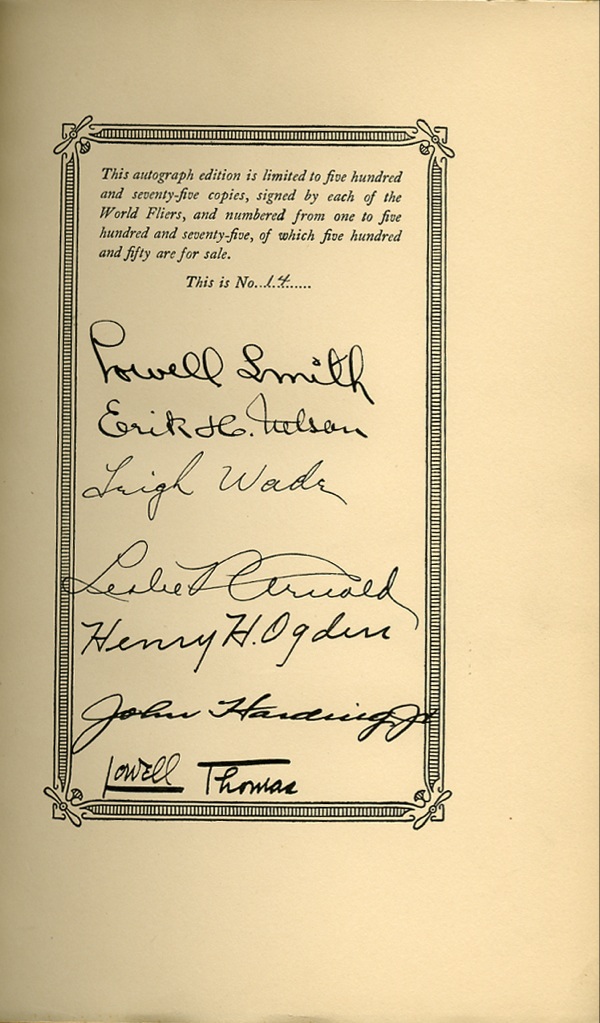 This autograph edition is limited to five hundred
and seventy-five copies, signed by each of the
World Fliers, and numbered from one to five
hundred and seventy-five, of which five hundred
and fifty are for sale.
This is No...14......
Lowell Smith
Erik H. Nelson
Leigh Wade
Leslie P Arnold
Henry H. Ogden
John Harding Jr
Lowell Thomas